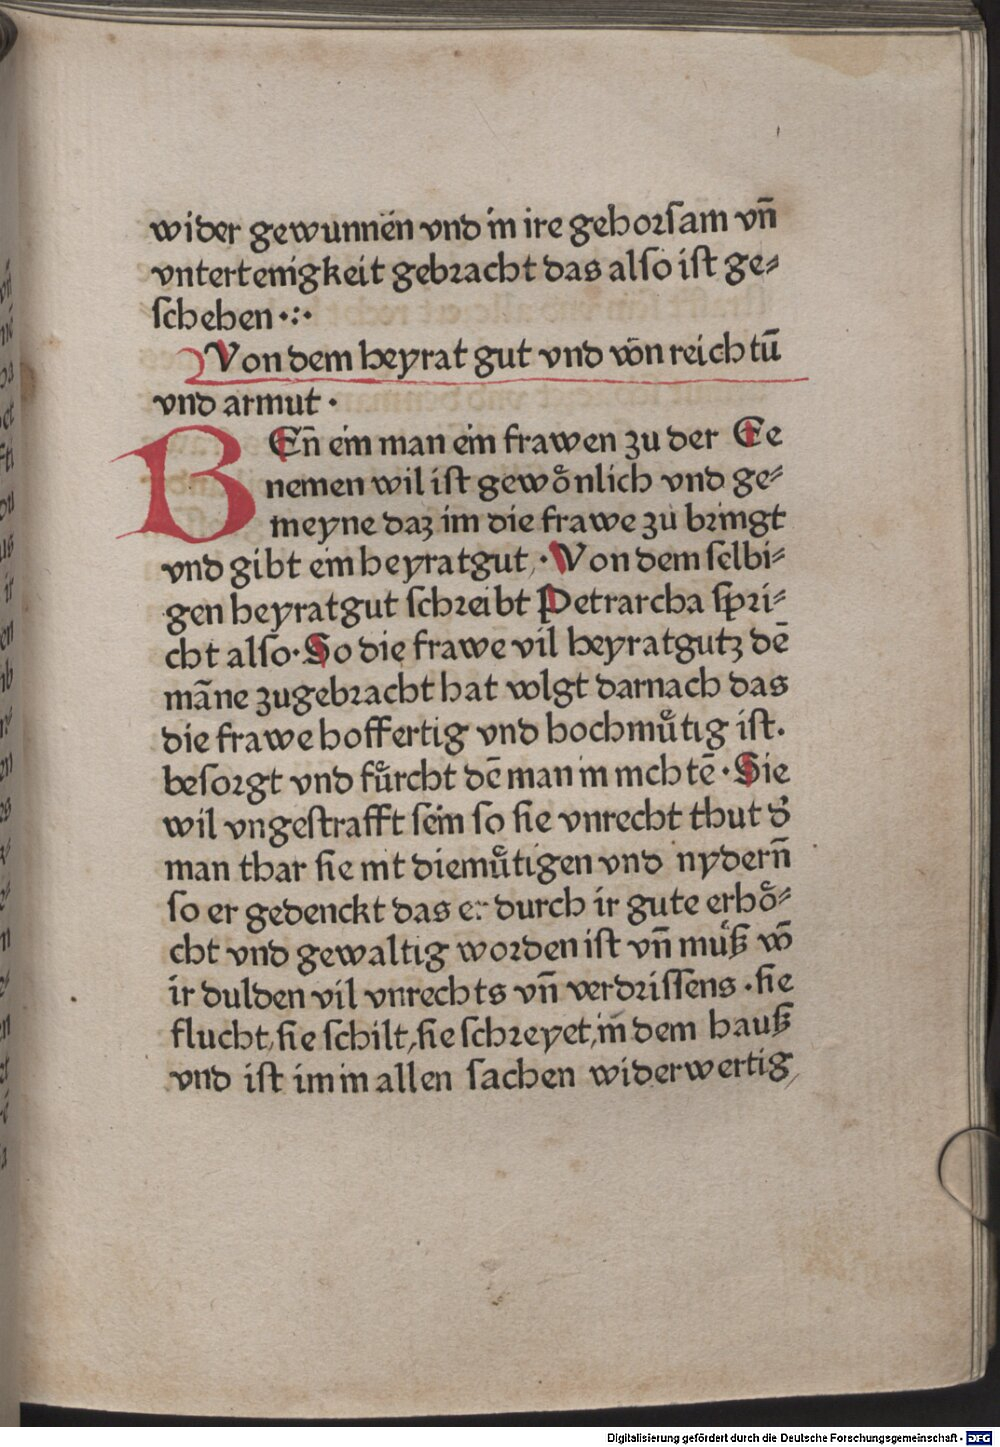 wider gewunnen vnd in ire gehorſam vn̄
vntertenigkeit gebracht das alſo iſt ge⸗
ſchehen ·:·
Von dem heyrat gut vnd vōn reichtū
vnd armut ·
BEn̄ ein man ein frawen zu der Ee
nemen wil iſt gewoͤnlich vnd ge⸗
meyne daz im die frawe zu bringt
vnd gibt ein heyratgut, · Von dem ſelbi⸗
gen heyratgut ſchreibt Petrarcha ſpri⸗
cht alſo· So die frawe vil heyratgutz dē
māne zugebracht hat volgt darnach das
die frawe hoffertig vnd hochmuͤtig iſt.
beſorgt vnd fuͤrcht dē man in nichtē · Sie
wil vngeſtrafft ſein ſo ſie vnrecht thut d̕
man thar ſie nit diemuͤtigen vnd nydern̄
ſo er gedenckt das er durch ir gute erhoͤ⸗
cht vnd gewaltig worden iſt vn̄ muͤß vō
ir dulden vil vnrechts vn̄ verdriſſens · ſie
flucht, ſie ſchilt, ſie ſchreyet, in dem hauß
vnd iſt im in allen ſachen widerwertig,
Digitalisierung gefördert durch die Deutsche Forschungsgemeinschaft - DFG